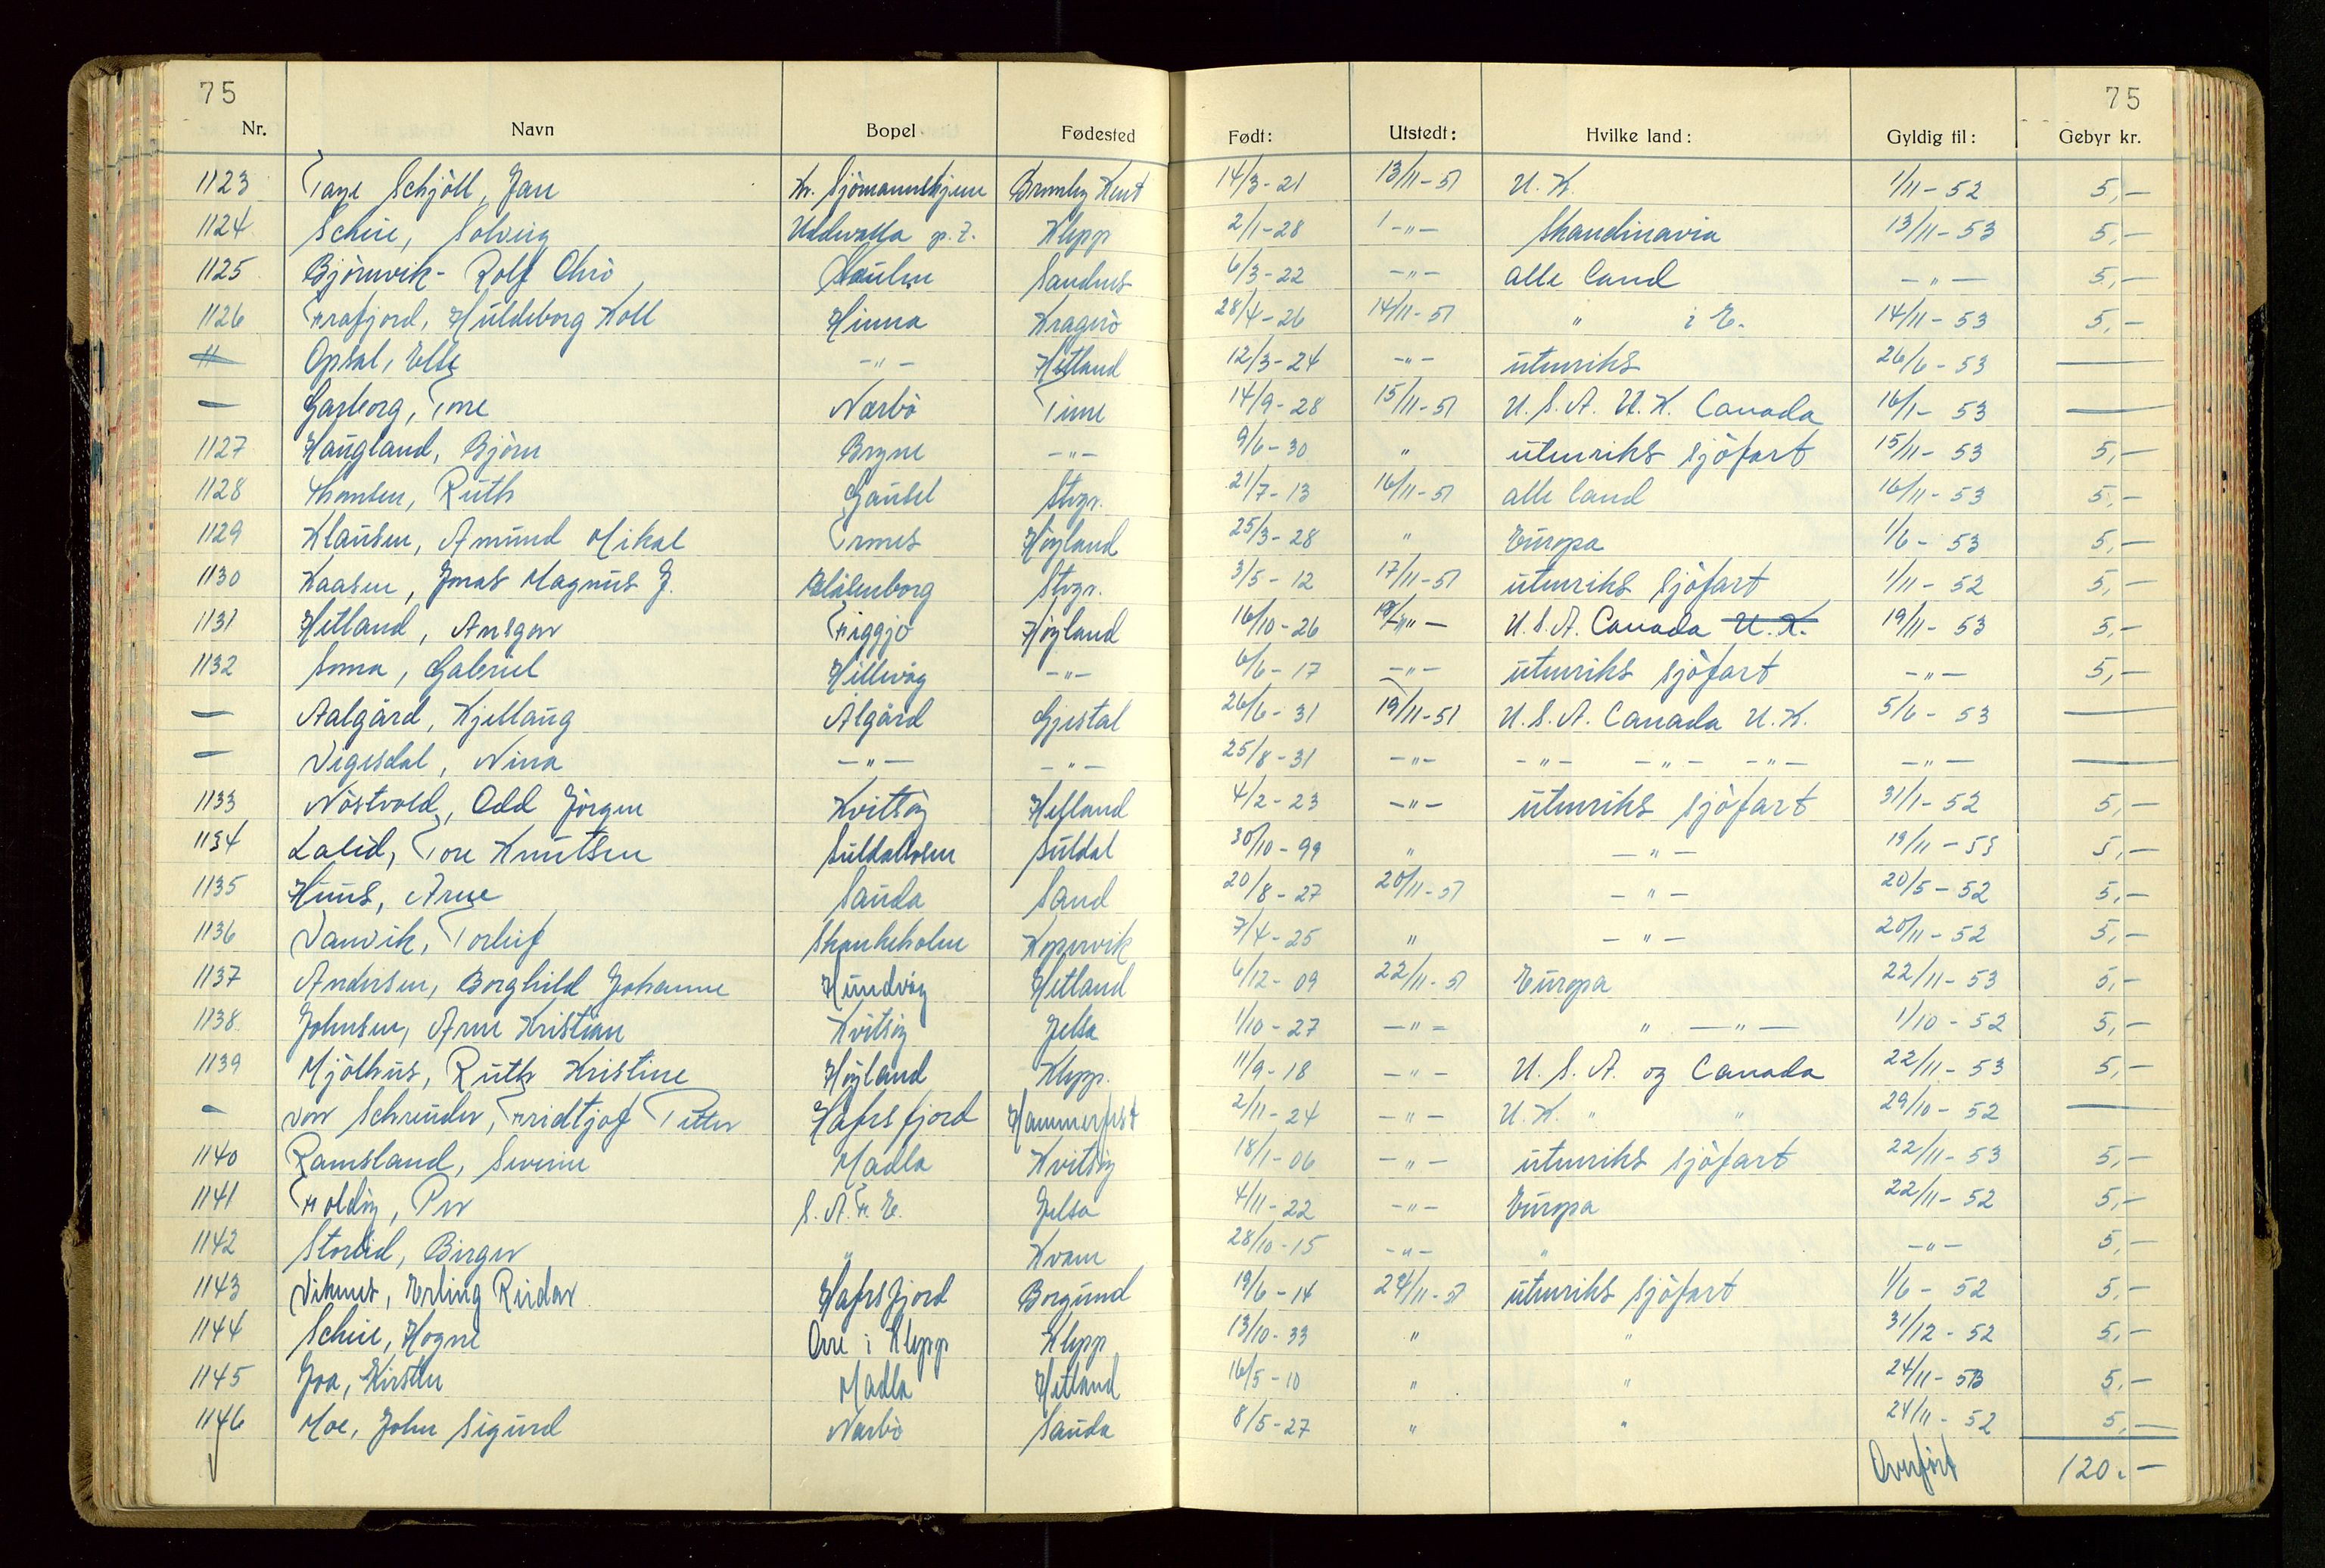 75 75
Nr. Navn Bopel Fødested Født: Utstedt: Hvilke land: Gyldig til: Gebyr kr.
1123 Schjöll, Jan Kr. Sjömannshjem Bromley Kent 14/3-21 13/11-51 U.K. 1/11-52 5,-
1124 Scheie, Solveig Uddevalla p.t. Klepp 2/1-28 -"- Skandinavia 13/11-53 5,-
1125 Björnvik - Rolf Sandnes 6/3-22 -"- alle land -"- 5,-
1126 Frafjord, Huldeborg Koll Hinna Kragerö 28/4-26 14/11-51 " i E. 14/11-53 5,-
Opsal, Elle -"- Hetland 12/3-24 -"- utenriks 26/6-53 —
— Garborg, Tone Nærbö Time 14/9-28 15/11-51 U.S.A. U.K. Canada 16/1-53 —
1127 Haugland, Björn Bryne -"- 9/6-30 " utenriks sjöfart 15/11-53 5,-
1128 Thomsen, Ruth Gausel Stvgr. 21/7-13 16/11-51 alle land 16/11-53 5,-
1129 Klausen, Amund Mikal Höyland 25/3-28 " Europa 1/6-53 5,-
1130 Kaasen, Jonas Magnus J. Blåsenborg Stvgr. 3/5-12 17/11-51 utenriks sjöfart 1/11-52 5,-
1131 Hetland, Ansgar Figgjo Höyland 16/10-26 19/11 -"- U.S.A. Canada U.K. 19/11-53 5,-
1132 Soma, Gabriel Hillevåg -"- 6/6-17 -"- utenriks sjöfart -"- 5,-
— Aalgård, Kjellaug Ålgård Gjestal 26/6-31 19/11-51 U.S.A. Canada U.K. 5/6-53 —
— Vigesdal, Nina -"- -"- 25/8-31 -"- -"- -"- -"- -"- —
1133 Nöstvold, Odd Jörgen Kvitsöy Hetland 4/2-23 -"- utenriks sjöfart 31/1-52 5,-
1134 Lalid, Tore Knutsen Suldalsosen Suldal 30/10-99 " -"- 19/11-53 5,-
1135 Huus, Arne Sauda Sand 20/8-27 20/11-51 -"- 20/5-52 5,-
1136 Vanvik, Torleif Skankeholm Kopervik 7/4-25 " -"- 20/11-52 5,-
1137 Andersen, Borghild Johanne Hundvåg Hetland 6/12-09 22/11-51 Europa 22/11-53 5,-
1138 Johnsen, Arne Kristian Kvitsöy Jelsa 1/10-27 -"- " -"- 1/10-52 5,-
1139 Mjölhus, Ruth Kristine Höyland Klepp. 11/9-18 -"- U.S.A. og Canada 22/11-53 5,-
— von Schreuder, Fridtjof Petter Hafrsfjord Hammerfest 2/11-24 -"- U.K. " " 29/10-52 —
1140 Ramsland, Severin Madla Kvitsöy 18/1-06 -"- utenriks sjöfart 22/11-53 5,-
1141 Foldöy, Per S.A.F.E. Jelsa 4/11-22 -"- Europa 22/11-52 5,-
1142 Storlid, Birger " Kvam 28/10-15 -"- " -"- 5,-
1143 Viknes, Erling Reidar Hafrsfjord Borgund 19/6-14 24/11-51 utenriks sjöfart 1/6-52 5,-
1144 Scheie, Hogne Orre i Klepp Klepp 13/10-33 " " 31/12-52 5,-
1145 Joa, Kirsten Madla Hetland 16/5-10 " " 24/11-53 5,-
1146 Moe, John Sigurd Nærbö Sauda 8/5-27 " " 24/11-52 5,-
Overfört 120,-